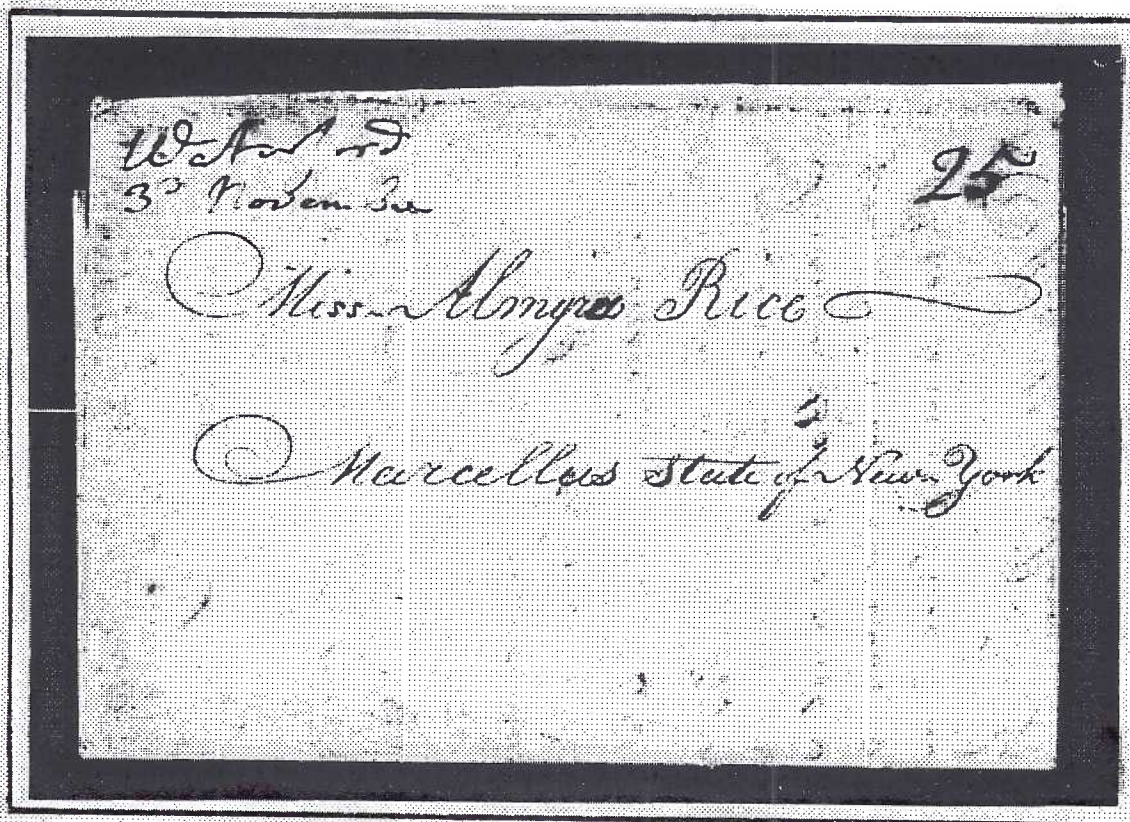 25
3d November
Miss Almyra Rice
Marcellus State of New York